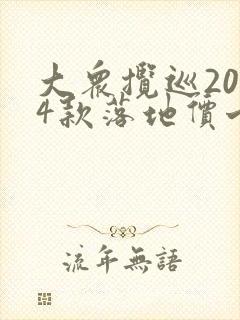 大衆攬巡20
4款落地價一
流年無語